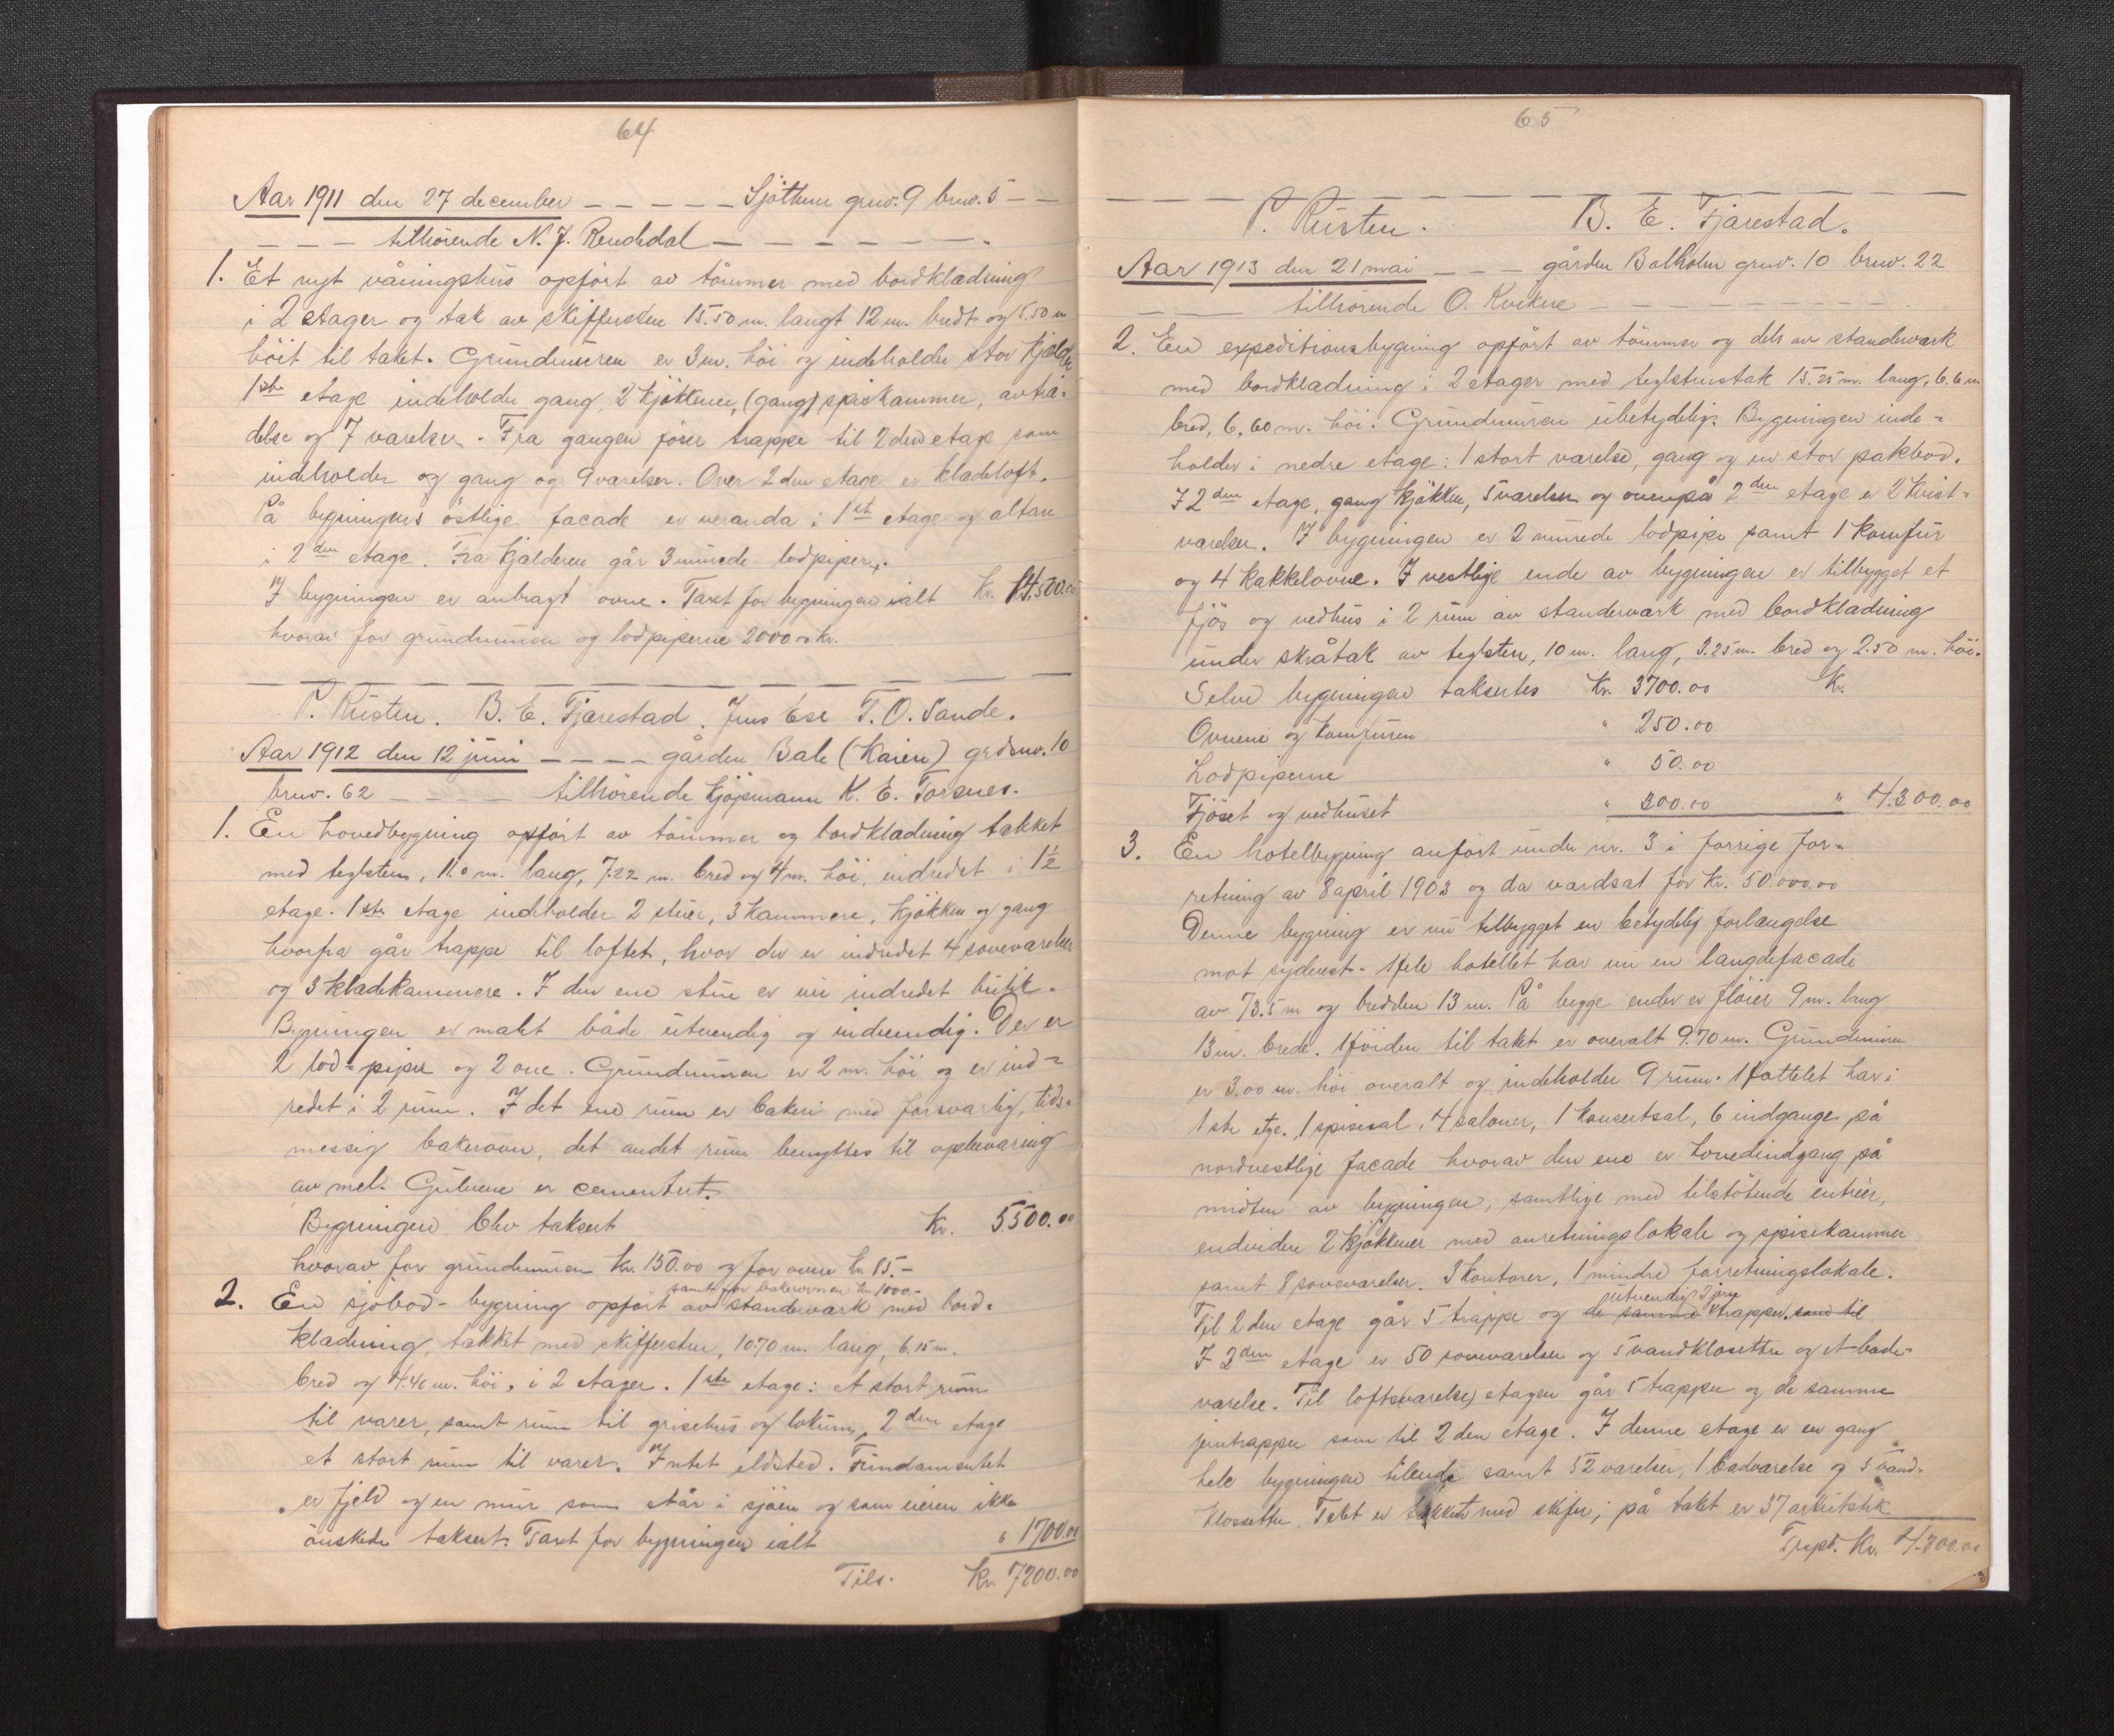 64
Aar 1911 den 27 december – – – – – Sjøtun grno. 9 brno. 5 – –
– – – tilhørende N. J. Rendedal – – – – – – – .
1. Et nyt våningshus opført av tømmer med bordklædning
i 2 etager og tak av skiffersten 15.50 m. langt 12 m. bredt og 5.50 m
høit til taket. Grundmuren er 3 m. høi og indeholder stor kjælder
1ste etage indeholder gang, 2 kjøkkener, (gang) spiskammer, avtræ-
delse og 7 værelser. Fra gangen fører trappe til 2den etage som
indeholder og gang og 9 værelser. Over 2den etage er klædeloft.
På bygningens østlige facade er veranda i 1ste etage og altan
i 2den etage. Fra kjælderen går 3 murede lodpiper.
I bygningen er anbragt ovne. Taxt for bygningen ialt Kr. 14.500.00
hvorav for grundmuren og lodpiperne 2000.00 kr.
P. Risten. B. E. Fjærestad. Jens Ese T. O. Sande.
Aar 1912 den 12 juni – – – – gården Bale (Kaien) grdsno. 10
brno. 62 – – – – tilhørende kjøpmann K. E. Torsnes.
1. En hovedbygning opført av tømmer og bordklædning tækket
med teglsten, 11.0 m. lang, 7.22 m. bred og 4 m. høi, indredet i 1½
etage. 1ste etage indeholder 2 stuer, 3 kammere, kjøkken og gang
hvorfra går trappe til loftet, hvor der er indredet 4 soveværelser
og 3 klædekammere. I den ene stue er nu indredet butik.
Bygningen er malet både utvendig og indvendig. Der er
2 lod-piper og 2 ovne. Grundmuren er 2 m. høi og er ind-
redet i 2 rum. I det ene rum er bakeri med forsvarlig, tids-
messig bakerovn, det andet rum benyttes til opbevaring
av mel. Gulvene er cementert.
Bygningen blev taksert Kr. 5500.00
hvorav for grundmuren kr. 150.00 og for ovne kr 85.–
samt for bakerovnen kr 1000.–
2. En sjøbod-bygning opført av standerværk med bord-
klædning, tækket med skiffersten, 10.70 m. lang, 6.15 m.
bred og 4.40 m. høi, i 2 etager. 1ste etage: et stort rum
til varer, samt rum til grisehus og lokum, 2den etage
et stort rum til varer. Intet ildsted. Fundamentet
er fjeld og en mur som står i sjøen og som eieren ikke
ønskede taksert. Taxt for bygningen ialt " 1700.00
Tils. Kr. 7200.00
65
P. Risten. B. E. Fjærestad.
Aar 1913 den 21 mai – – – gården Balholm grno. 10 brno. 22
– – – tilhørende O. Kvikne – – – – – – –
2. En expeditionsbygning opført av tømmer og dels av standerværk
med bordklædning i 2 etager med teglstenstak 15.25 m. lang, 6.6 m
bred, 6.60 m. høi. Grundmuren ubetydelig. Bygningen inde-
holder i nedre etage: 1 stort værelse, gang og en stor pakbod.
I 2den etage, gang kjøkken, 5 værelser og ovenpå 2den etage er 2 kvist-
værelser. I bygningen er 2 murede lodpipe samt 1 komfur
og 4 kakkelovne. I vestlige ende av bygningen er tilbygget et
fjøs og vedhus i 2 rum av standerværk med bordklædning
under skråtak av teglsten, 10 m. lang, 3.25 m. bred og 2.50 m. høi.
Selve bygningen taksertes Kr. 3700.00 Kr.
Ovnene og komfuren " 250.00
Lodpiperne " 50.00
Fjøset og vedhuset " 300.00 " 4300.00
3. En hotelbygning anført under nr. 3 i forrige for-
retning av 8 april 1903 og da værdsat for Kr. 50.000.00
Denne bygning er nu tilbygget en betydelig forlængelse
mot sydvest. Hele hotellet har nu en længdefacade
av 73.5 m og bredden 13 m. På begge ender er fløier 9 m. lang
13 m. brede. Høiden til taket er overalt 9.70 m. Grundmuren
er 3.00 m. høi overalt og indeholder 9 rum. Hottelet har i
1ste etge. 1 spisesal, 4 saloner, 1 konsertsal, 6 indgange på
nordvestlige facade hvorav den ene er hovedindgang på
midten av bygningen, samtlige med tilstøtende entréer,
endvidere 2 kjøkkener med anretningslokale og spisekammer
samt 8 soveværelser. 3 kontorer, 1 mindre forretningslokale.
utvendig 2 jern
Til 2den etage går 5 trappe og de samme trapper. som til
I 2den etage er 50 soveværelser og 5 vandklosetter og et bade-
værelse. Til lofts(værelse) etagen går 5 trapper og de samme
jerntrapper som til 2den etage. I denne etage er en gang
hele bygningen tilende samt 52 værelser, 1 badværelse og 5 vand-
klossetter. Taket er tækket med skifer; på taket er 37 arkitstik
Trspt. Kr. 4300.00